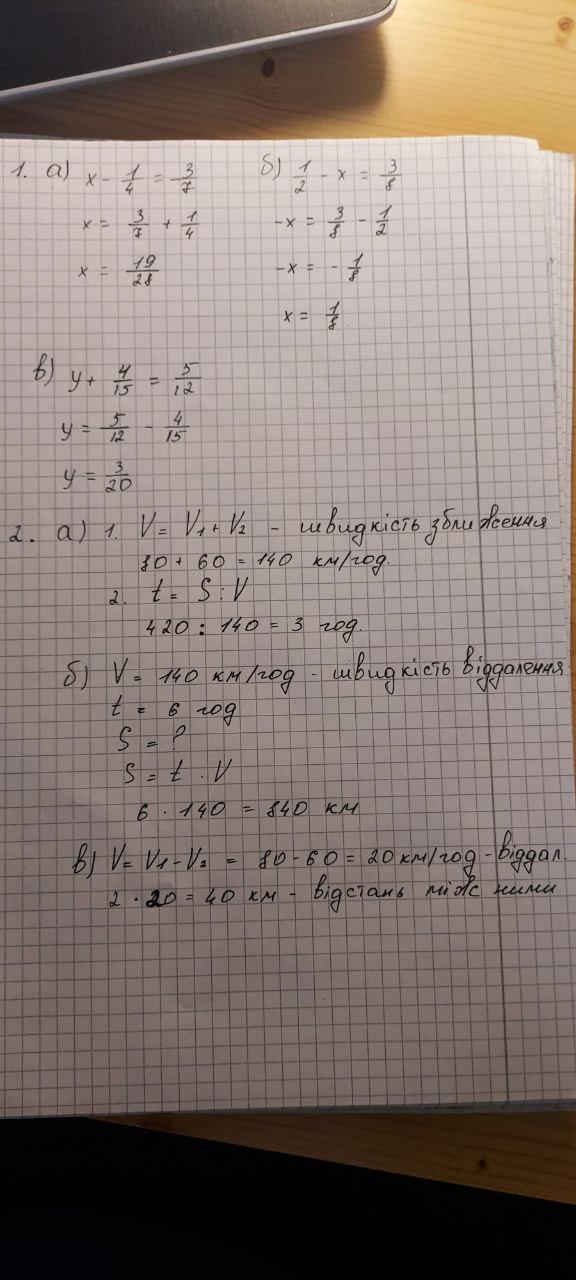 1. а) x - 1/4 = 3/7
x = 3/7 + 1/4
x = 19/28
б) 1/2 - x = 3/8
-x = 3/8 - 1/2
-x = - 1/8
x = 1/8
в) y + 4/15 = 5/12
y = 5/12 - 4/15
y = 3/20
2. а) 1. V = V1 + V2 - швидкість зближення
80 + 60 = 140 км/год.
2. t = S : V
420 : 140 = 3 год.
б) V = 140 км/год - швидкість віддалення
t = 6 год
S = ?
S = t · V
6 · 140 = 840 км
в) V = V1 - V2 = 80 - 60 = 20 км/год - віддал.
2 · 20 = 40 км - відстань між ними